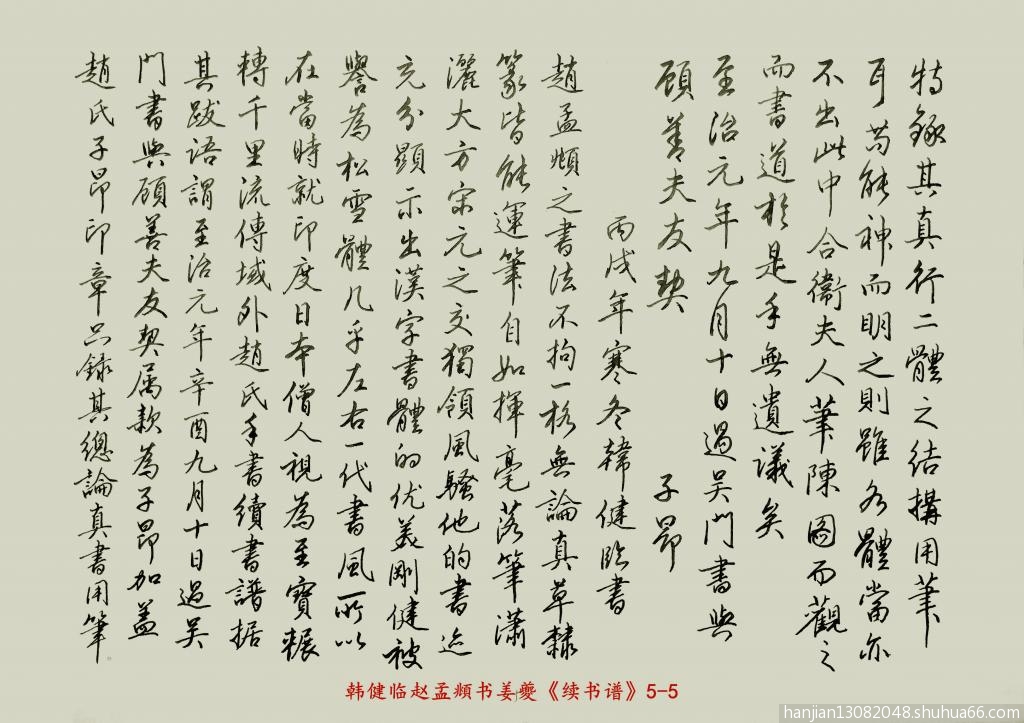 特錄其真行二體之结搆用筆
耳苟能神而明之則雖各體當亦
不出此中合衞夫人筆陳圖而觀之
而書道於是乎無遺議矣
至治元年九月十日過吴門書與
顧善夫友契
子昂
丙戌年寒冬韓健臨書
趙孟頫之書法不拘一格無論真草隸
篆皆能運筆自如揮毫落筆瀟
灑大方宋元之交獨領風騷他的書迹
充分顯示出漢字書體的优美剛健被
譽為松雪體几乎左右一代書風所以
在當時就印度日本僧人視為至寳輾
轉千里流傳域外趙氏手書續書譜据
其跋語謂至治元年辛酉九月十日過吴
門書與顧善夫友契属款為子昂加盖
趙氏子昂印章只錄其總論真書用筆
韩健临赵孟頫书姜夔《续书谱》5-5
hanjian13082048.shuhua66.com